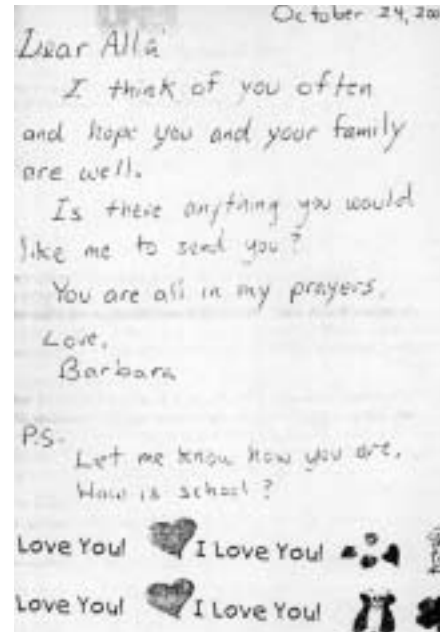 October 24, 200
Dear Alla
I think of you often
and hope you and your family
are well.
Is there anything you would
like me to send you?
You are all in my prayers.
Love,
Barbara
P.S.
Let me know how you are.
How is school?
Love You! I Love You!
Love You! I Love You!